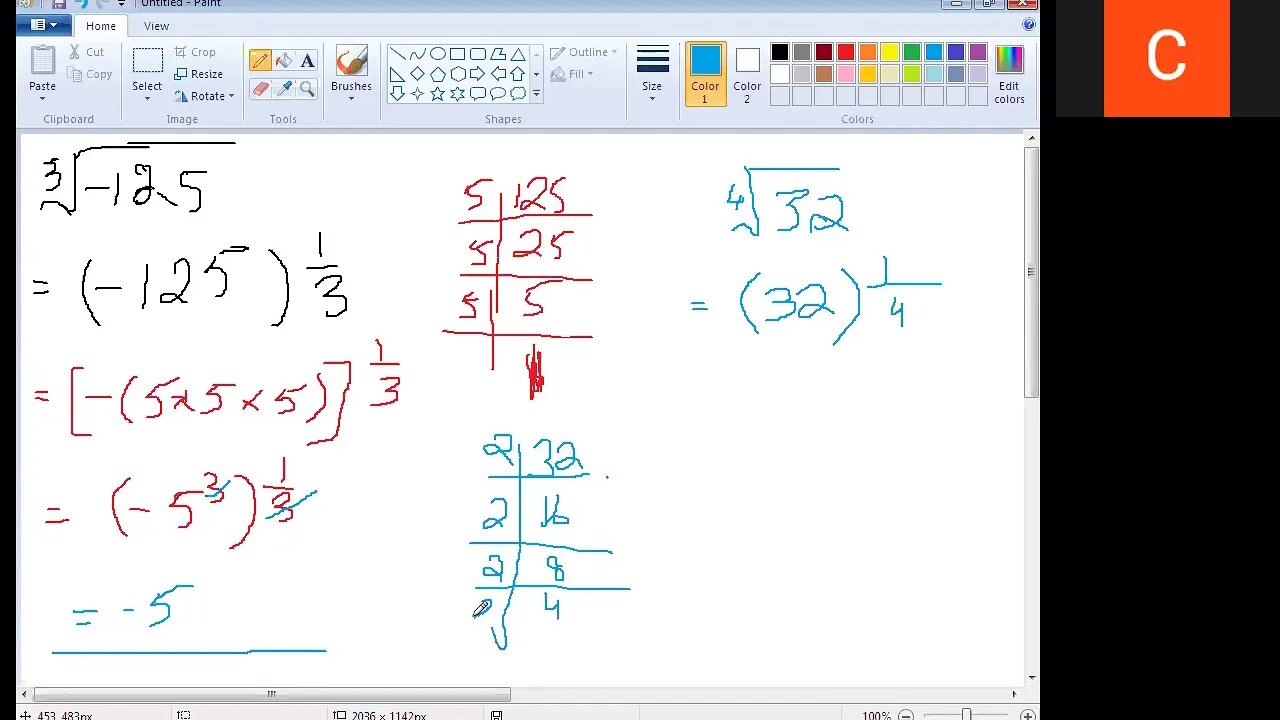 Untitled - Paint
Home View
Paste
Cut
Copy
Clipboard
Select
Crop
Resize
Rotate
Image
A
Tools
Brushes
Shapes
Outline
Fill
Size
Color 1
Color 2
Colors
Edit colors
C
∛-125
= (-125)^1/3
= [-(5×5×5)]^1/3
= (-5^3)^1/3
= -5
5 | 125
5 | 25
5 | 5
2 | 32
2 | 16
2 | 8
2 | 4
∜32
= (32)^1/4
453, 483px
2036 × 1142px
100%